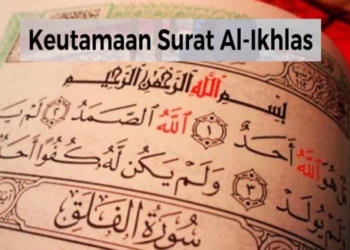 Keutamaan Surat Al-Ikhlas
بِسْمِ اللَّهِ الرَّحْمَٰنِ الرَّحِيمِ
هُوَ اللَّهُ أَحَدٌ ١ اللَّهُ الصَّمَدُ ٢ لَمْ
يُولَدْ ٣ وَلَمْ يَكُن لَّهُ كُفُوًا أَحَدٌ
سُورَةُ الْفَلَقِ